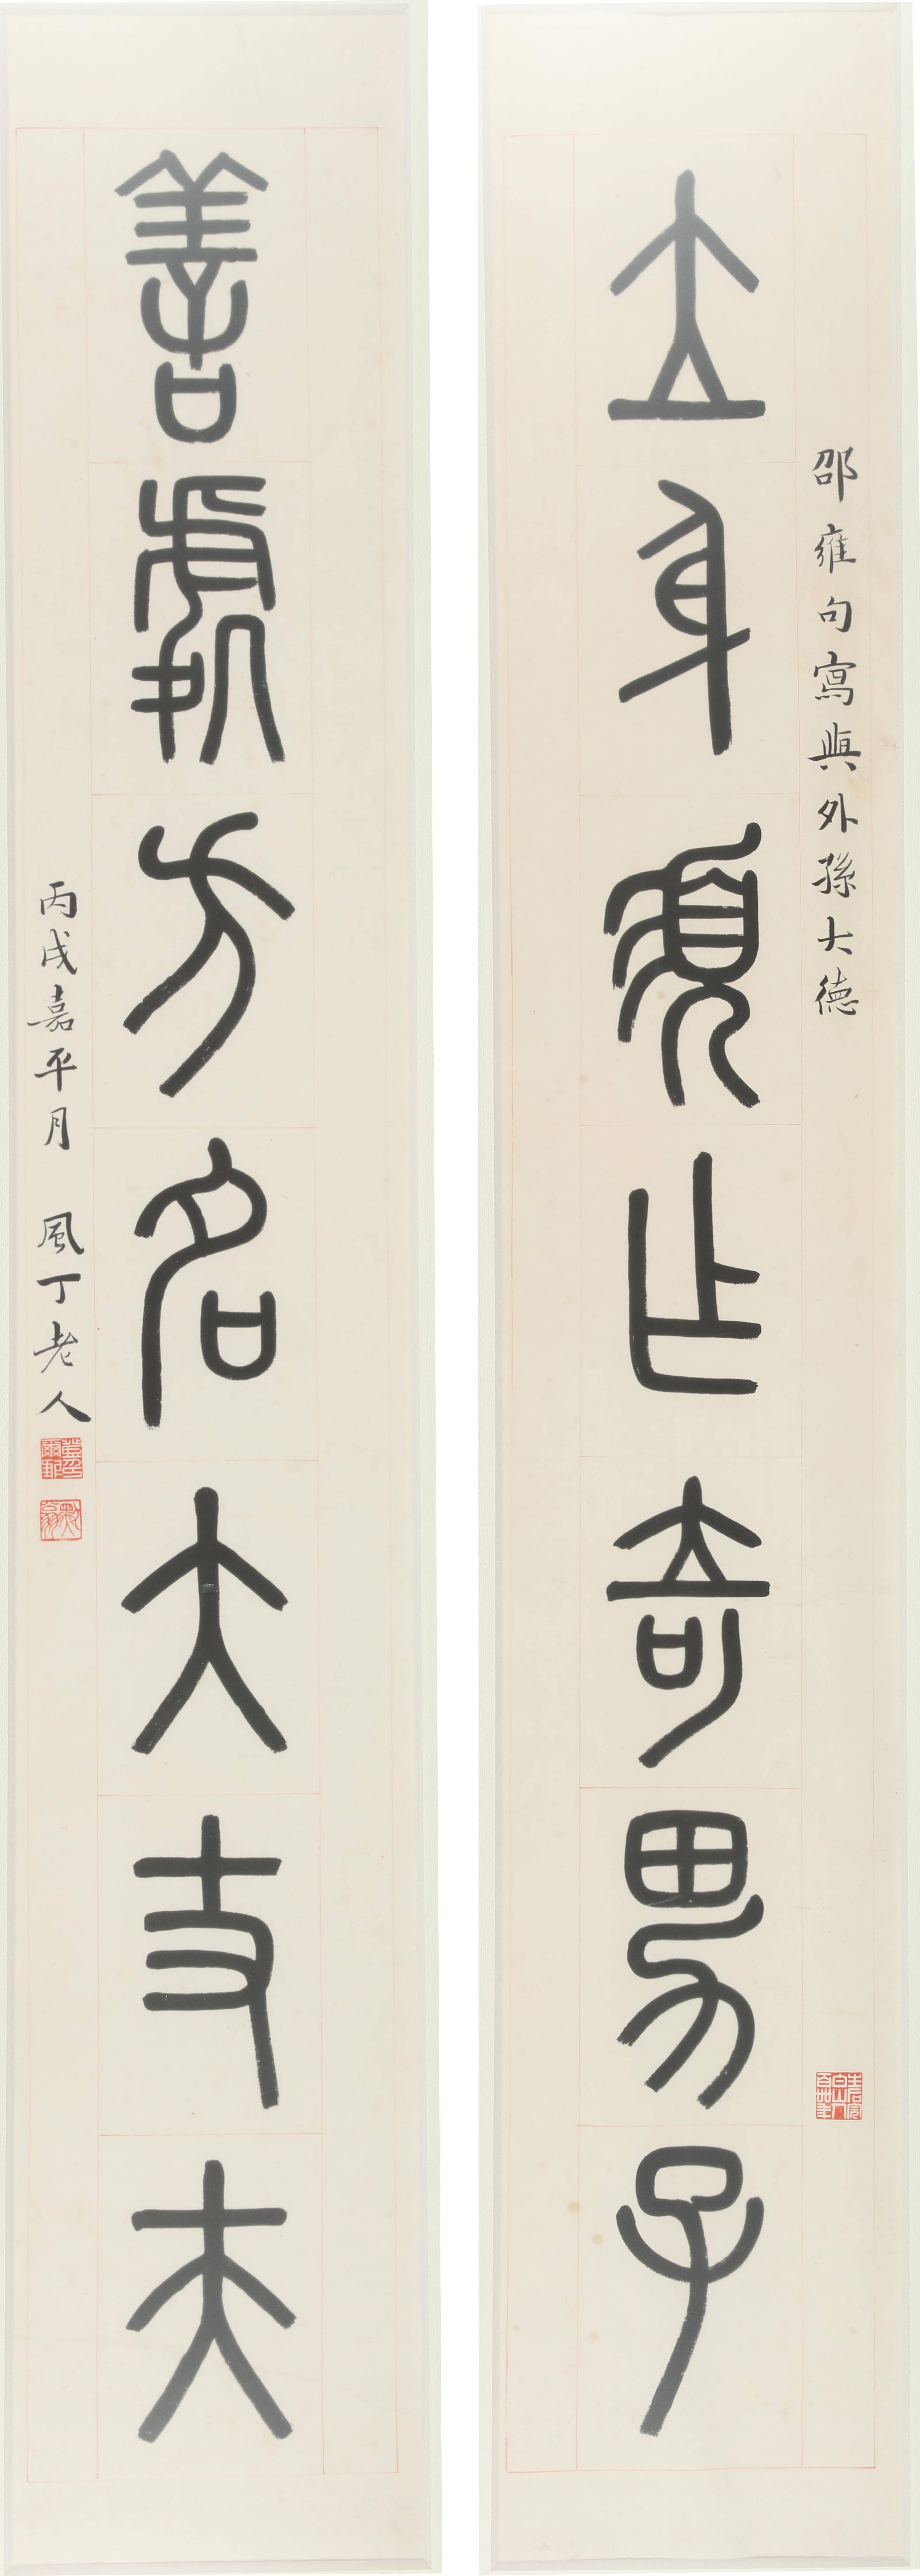 邵雍句寫與外孫大德
立身須作奇男子
善處方名大丈夫
丙戌嘉平月 風丁老人